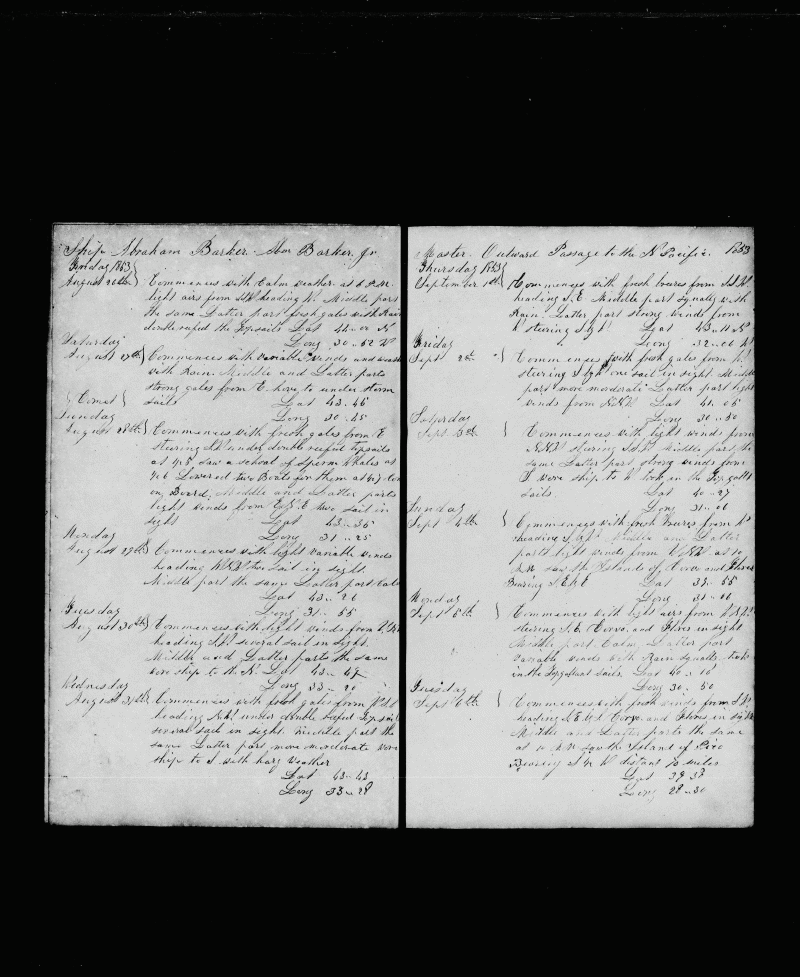 Ship Abraham Barker Abm Barker Jr
Friday 1853
August 26th } Commences with Calm weather. at 6 P.M.
light airs from heading N. Middle part
the same Latter part fresh gales with Rain
double reefed the Topsails Lat 44 .. 02 N
Long 30 .. 52 W
Saturday
August 27th } Commences with variable winds and
with Rain. Middle and Latter parts
strong gales from E. hove to under storm
{ Comet } Sails Lat 43 .. 46
Long 30 .. 45
Sunday
August 28th } Commences with fresh gales from E
steering under double reefed Topsails
at 4.5 saw a school of Sperm Whales at
Lowered two Boats for them at
on Board, Middle and Latter parts
light winds from two sail in
sight Lat 43 .. 36
Long 31 .. 25
Monday
August 29th } Commences with light variable winds
heading two sail in sight.
Middle part the same Latter part Calm
Lat 43 .. 26
Long 31 .. 55
Tuesday
August 30th } Commences with light winds from
heading several sail in sight.
Middle and Latter parts the same
wore ship to the N. Lat 43 .. 49
Long 33 .. 20
Wednesday
August 31th Commences with fresh gales from
heading under double reefed Topsails
several sail in sight. Middle part the
same Latter part more moderate wore
ship to S with hazy weather
Lat 43 .. 43
Long 33 .. 28
Master. Outward Passage to the N. Pacific. 1853
Thursday 1853
September 1th } Commences with fresh breezes from
heading S.E. Middle part squally with
Rain. Latter part strong winds from
steering Lat 43 .. 11 N
Long 32 .. 06 W
Friday
Sept 2th Commences with fresh gales from
steering one sail in sight. Middle
part more morderate Latter part light
winds from Lat 41 .. 05
Long 30 .. 30
Saturday
Sept 3th } Commences with light winds from
steering Middle part the
same Latter part strong winds from
wore ship to W took in the Topgallt
sails. Lat 40 .. 27
Long 31 .. 06
Sunday
Sept 4th } Commences with fresh breezes from
heading Middle and Latter
parts light winds from at 10
A.M. saw the Islands of Corvo and Flores
Bearing Lat 39 .. 55
Long 31 .. 00
Monday
Sept 5th } Commences with light airs from
steering S.E. Corvo and Flores in sight
Middle part Calm. Latter part
variable winds with Rain squalls took
in the Topgallant sails. Lat 40 .. 10
Long 30 .. 50
Tuesday
Sept 6th } Commences with fresh winds from
heading Corvo and Flores in sight
Middle and Latter parts the same
at saw the Island of Pico
Bearing distant 70 miles
Lat 39 .. 38
Long 28 .. 30